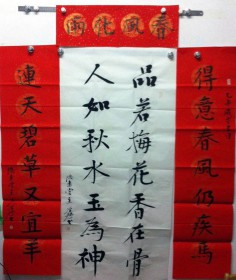 春風化雨
得意春風仍疾馬
品若梅花香在骨
人如秋水玉為神
連天碧草又宜羊